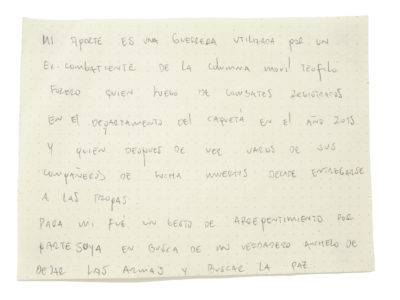 MI APORTE ES UNA GUERRERA UTILIZADA POR UN
EX-COMBATIENTE DE LA COLUMNA MOVIL TEOFILO
FORERO QUIEN LUEGO DE COMBATES REGISTRADOS
EN El DEPARTAMENTO DEl CAQUETÁ EN El AÑO 2015
Y QUIEN DESPUES DE VER VARIOS DE SUS
COMPAÑEROS DE LUCHA MUERTOS DECIDE ENTREGARSE
A LAS TROPAS
PARA MI FUÉ UN GESTO DE ARREPENTIMIENTO POR
PARTE SUYA EN BUSCA DE UN VERDADERO ANHELO DE
DEJAR LAS ARMAS Y BUSCAR LA PAZ